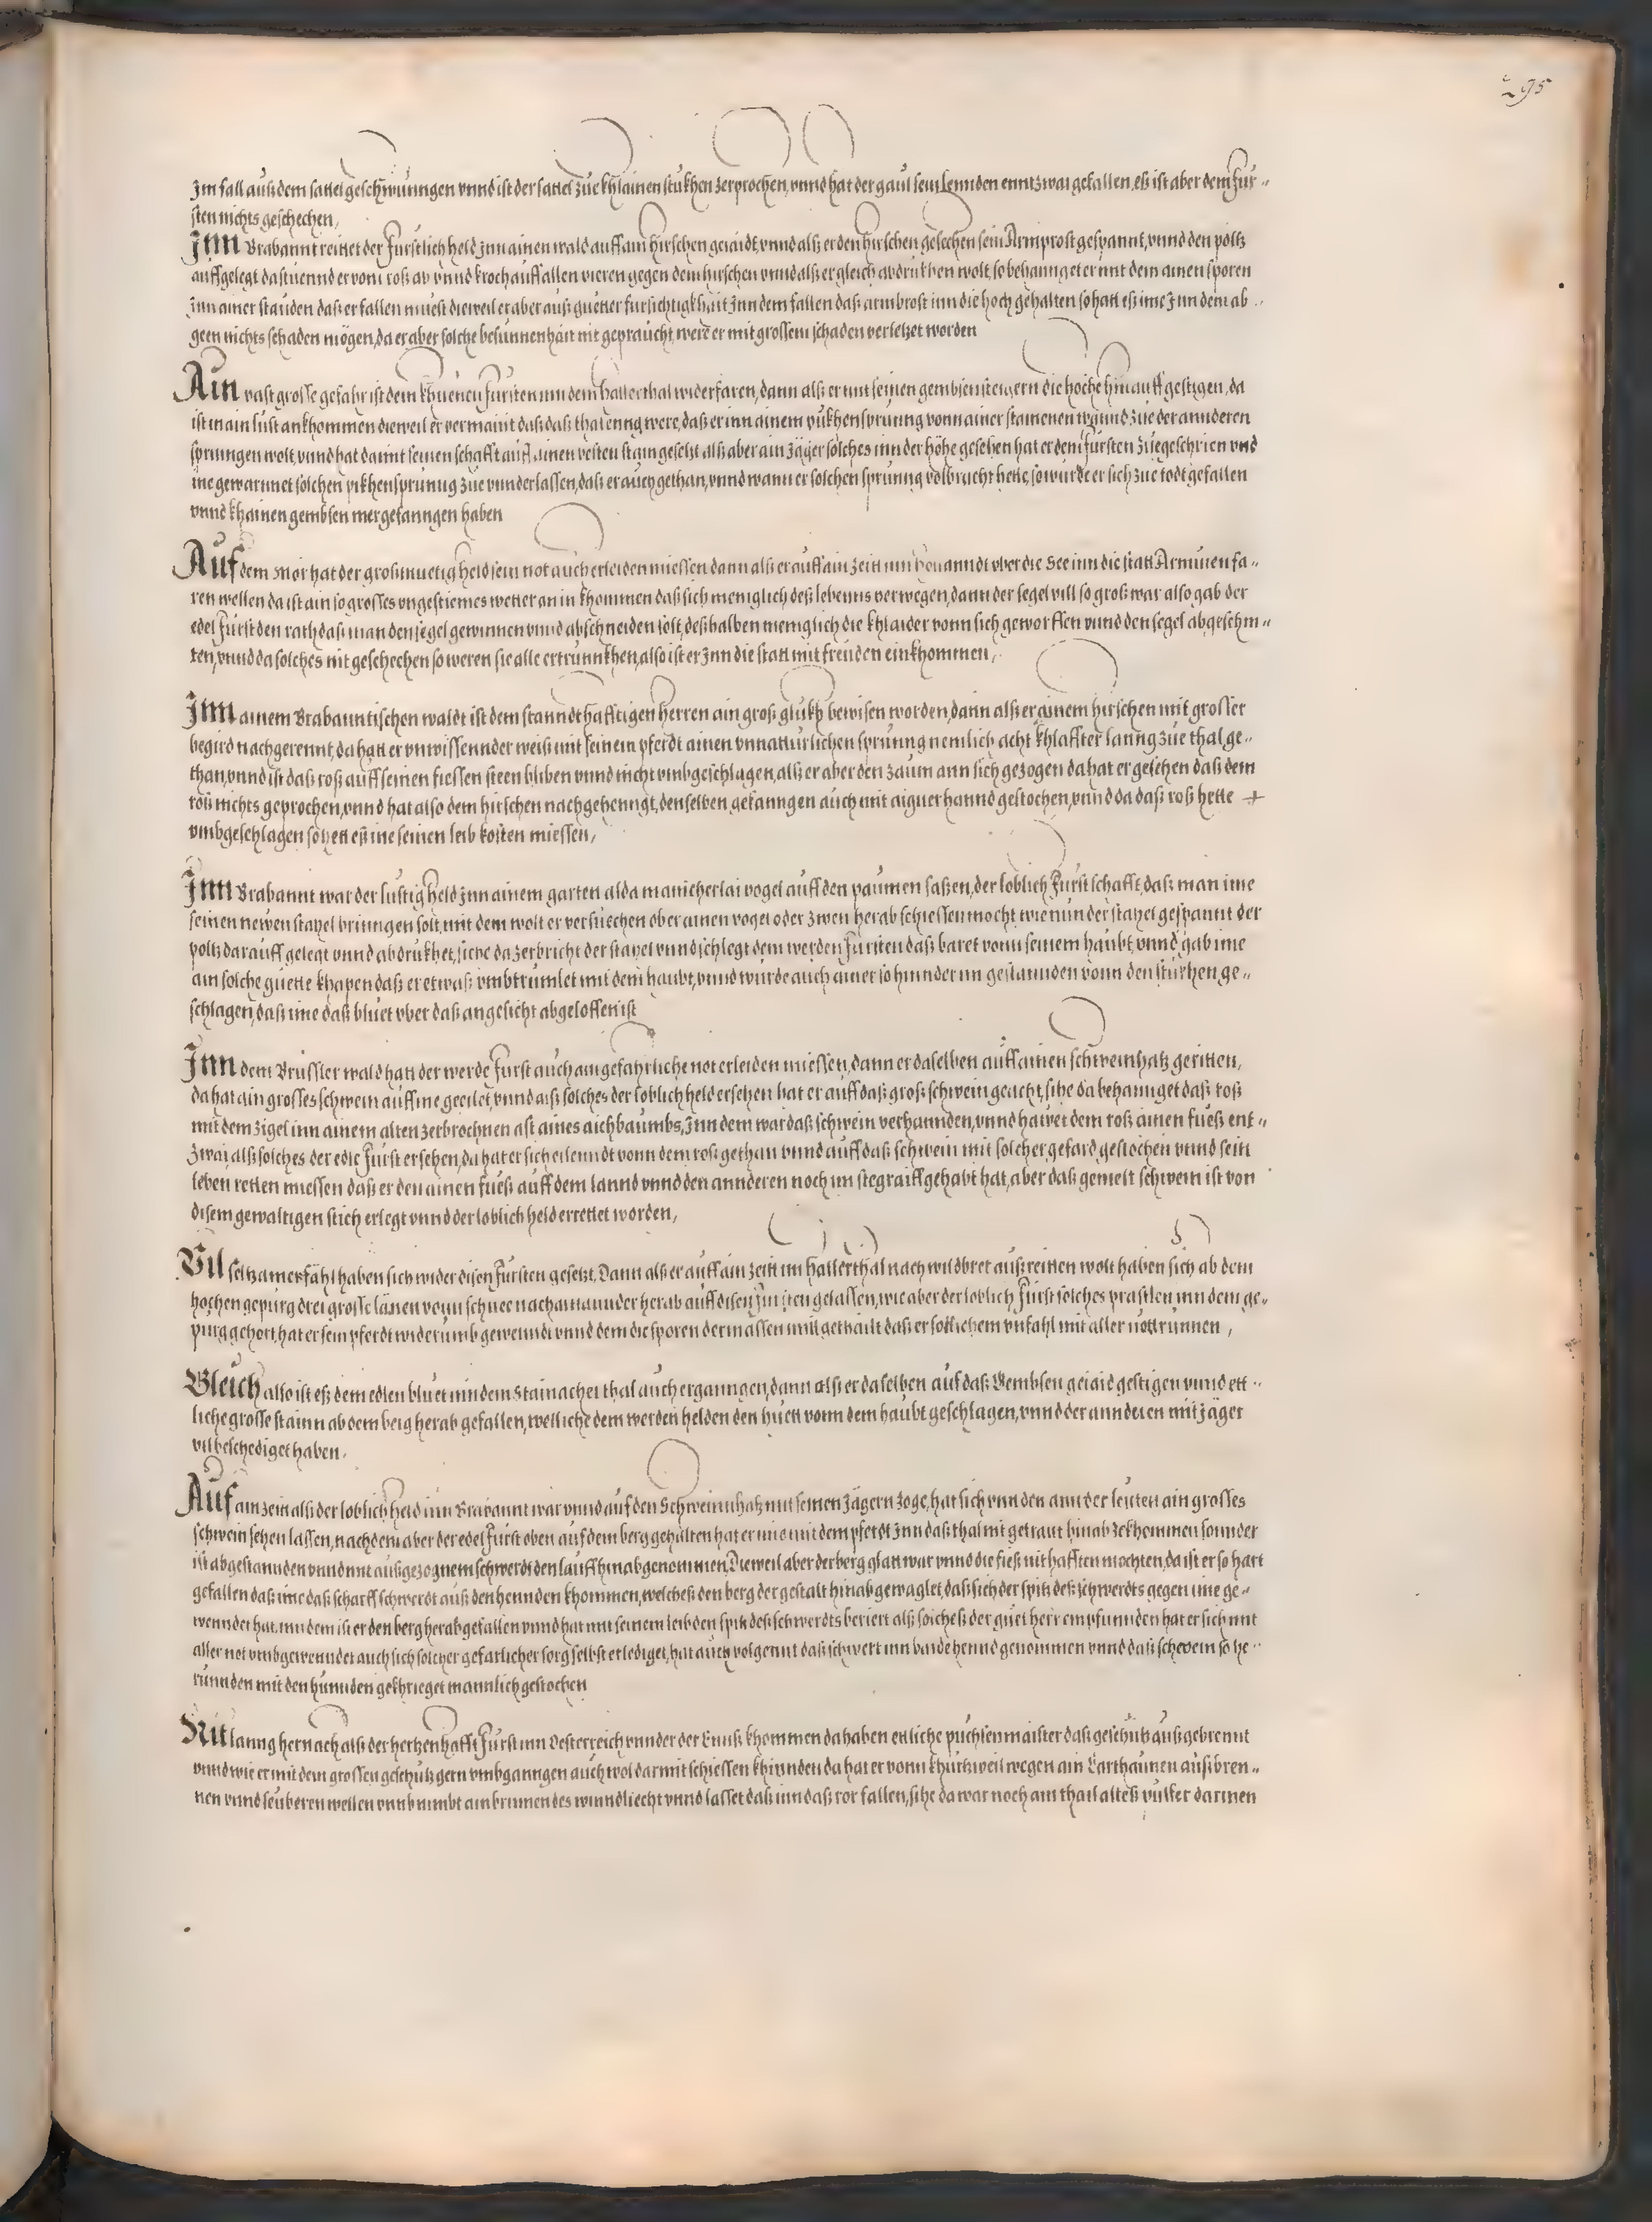 295
Im fall auß dem sattel geschwunngen vnnd ist der sattel zue khlainen stukhen zerprochen, vnnd hat der gaul sein Lennden enntzwai gefallen, eß ist aber dem Fur-
sten nichts geschechen,
Inn Brabannt reittet der Furstlich held Inn ainen wald auff ain hirschen geiaidt, vnnd alß er den hirschen gesechen sein Armprost gespannt, vnnd den poltz
auffgelegt da stuennd er vom roß ab vnnd kroch auff allen vieren gegen dem hirschen vnnd alß er gleich abdrukhen wolt, so behannget er mit dem ainen sporen
Inn ainer stauden daß er fallen muest dieweil er aber auß guetter fursichtigkhait Inn dem fallen daß armbrost inn die hoch gehalten so hatt eß ime Inn dem ab-
geen nichts schaden mögen, da er aber solche besunnenhait nit gepraucht, were er mit grossem schaden verletzet worden
Ain vast grosse gefahr ist dem khuenen Fursten inn dem hallerthal widerfaren, dann alß er mit seinen gembsensteigern die hoche hinauff gestigen, da
ist in ain lust ankhommen dieweil er vermaint daß daß thal enng were, daß er inn ainem pukhensprunng vonn ainer stainenen wannd zue der annderen
sprungen wolt, vnnd hat damit seinen schafft auff ainen vesten stain gesetzt alß aber ain Jäger solches inn der höhe gesehen hat er dem fursten zuegeschrien vnd
ine gewarnnet solchen pikhensprunng zue vnnderlassen, daß er auch gethan, vnnd wann er solchen sprunng volbracht hette, so wurde er sich zue todt gefallen
vnnd khainen gembsen mer gefanngen haben
Auf dem Mör hat der großmuetig held sein not auch erleiden miessen dann alß er auff ain zeitt inn vber die See inn die statt Armuien fa-
ren wellen da ist ain so grosses vngestiemes wetter an in khommen daß sich meniglich deß lebenns verwegen, dann der segel vill so groß war also gab der
edel Furst den rath daß man den segel gewinnen vnnd abschneiden solt, deßhalben meniglich die khlaider vonn sich geworffen vnnd den segel abgeschni-
ten, vnnd da solches nit geschechen so weren sie alle ertrunnkhen, also ist er Inn die statt mit freuden einkhommen,
Inn ainem Brabanntischen waldt ist dem stanndthafftigen herren ain groß glukh bewisen worden, dann alß er ainem hirschen mit grosser
begird nachgerennt, da hatt er vnwissennder weiß mit seinem pferdt ainen vnnatturlichen sprunng nemlich acht khlaffter lanng zue thal ge-
than, vnnd ist daß roß auff seinen fiessen steen bliben vnnd nicht vmbgeschlagen, alß er aber den zaum ann sich gezogen da hat er gesehen daß dem
roß nichts geprochen, vnnd hat also dem hirschen nachgehenngt, denselben gefanngen auch mit aigner hannd gestochen, vnnd da daß roß hette +
vmbgeschlagen so hett eß ine seinen leib kosten miessen,
Inn Brabannt war der lustig held Inn ainem garten alda manicherlai vogel auff den paumen saßen, der loblich Furst schafft, daß man ime
seinen newen stahel bringen solt, mit dem wolt er versuechen ober ainen vogel oder zwen herab schiessen mocht wie nun der stahel gespannt der
poltz darauff gelegt vnnd abdrukhet, siehe da zerbricht der stahel vnnd schlegt dem werden Fursten daß baret vonn seinem haubt, vnnd gab ime
ain solche guette khapen daß er etwaß vmbtrumlet mit dem haubt, vnnd wurde auch ainer so hinnder im gestannden vonn den stukhen ge-
schlagen, daß ime daß bluet vber daß angesicht abgeloffen ist
Inn dem Brussler wald hatt der werde Furst auch ain gefahrliche not erleiden miessen, dann er daselben auff ainen schweinhatz geritten,
da hat ain grosses schwein auff ine geeilet, vnnd alß solches der loblich held ersehen hat er auff daß groß schwein geacht, sihe da behannget daß roß
mit dem zigel inn ainem alten zerbrochnen ast aines aichbaumbs, Inn dem war daß schwein verhannden, vnnd hawet dem roß ainen fueß ent-
zwai, alß solches der edle Furst ersehen, da hat er sich eilenndt vonn dem roß gethan vnnd auff daß schwein mit solcher gefard gestochen vnnd sein
leben retten miessen daß er den ainen fueß auff dem lannd vnnd den annderen noch im stegraiff gehabt hat, aber daß gemelt schwein ist von
disem gewaltigen stich erlegt vnnd der loblich held errettet worden,
Vil seltzamer fähl haben sich wider disen Fursten gesetzt, Dann alß er auff ain zeitt im hallerthal nach wildbret auß reitten wolt haben sich ab dem
hochen gepurg drei grosse länen vonn schnee nach ainannder herab auff disen Fursten gelassen, wie aber der loblich Furst solches prastlen inn dem ge-
purg gehort, hat er sein pferdt widerumb gewenndt vnnd dem die sporen dermassen mitgethailt daß er sollichem vnfahl mit aller nott runnen,
Gleich also ist eß dem edlen bluet inn dem Stainacher thal auch erganngen, dann alß er daselben auf daß Gembsen geiaid gestigen vnnd ett-
liche grosse stainn ab dem berg herab gefallen, welliche dem werden helden den huett vonn dem haubt geschlagen, vnnd der annderen mitJäger
vil beschediget haben,
Auf ain zeitt alß der loblich held inn Brabannt war vnnd auf den Schweinnhatz mit seinen Jägern zoge, hat sich vnnden ann der leutten ain grosses
schwein sehen lassen, nachdem aber der edel Furst oben auf dem berg gehalten hat er ime mit dem pferdt Inn daß thal nit getraut hinab zekhommen sonnder
ist abgestannden vnnd mit außgezognem schwerdt den lauff hinab genommen, Dieweil aber der berg glatt war vnnd die fieß nit hafften mochten, da ist er so hart
gefallen daß ime daß scharff schwerdt auß den hennden khommen, welcheß den berg der gestalt hinab gewaglet, daß sich der spitz deß schwerdts gegen ime ge-
wenndet hat, inn dem ist er den berg herab gefallen vnnd hat mit seinem leib den spitz deß schwerdts beriert alß solcheß der guet herr empfunnden hat er sich mit
aller not vmbgewenndet auch sich solcher gefarlicher sorg selbst erlediget, hat auch volgennt daß schwert inn baide hennd genommen vnnd daß schwein so he-
runnden mit den hunnden gekhrieget mannlich gestochen
Nit lanng hernach alß der hertzenhafft Furst inn Oesterreich vnnder der Ennß khommen da haben etliche puchsenmaister daß geschutz außgebrennt
vnnd wie er mit dem grossen geschutz gern vmbganngen auch wol darmit schiessen khinnden da hat er vonn khurtzweil wegen ain Carthaunen außbren-
nen vnnd seuberen wellen vnnd nimbt ain brinnendes winndliecht vnnd lasset daß inn daß ror fallen, sihe da war noch ain thail alteß pulfer darinen